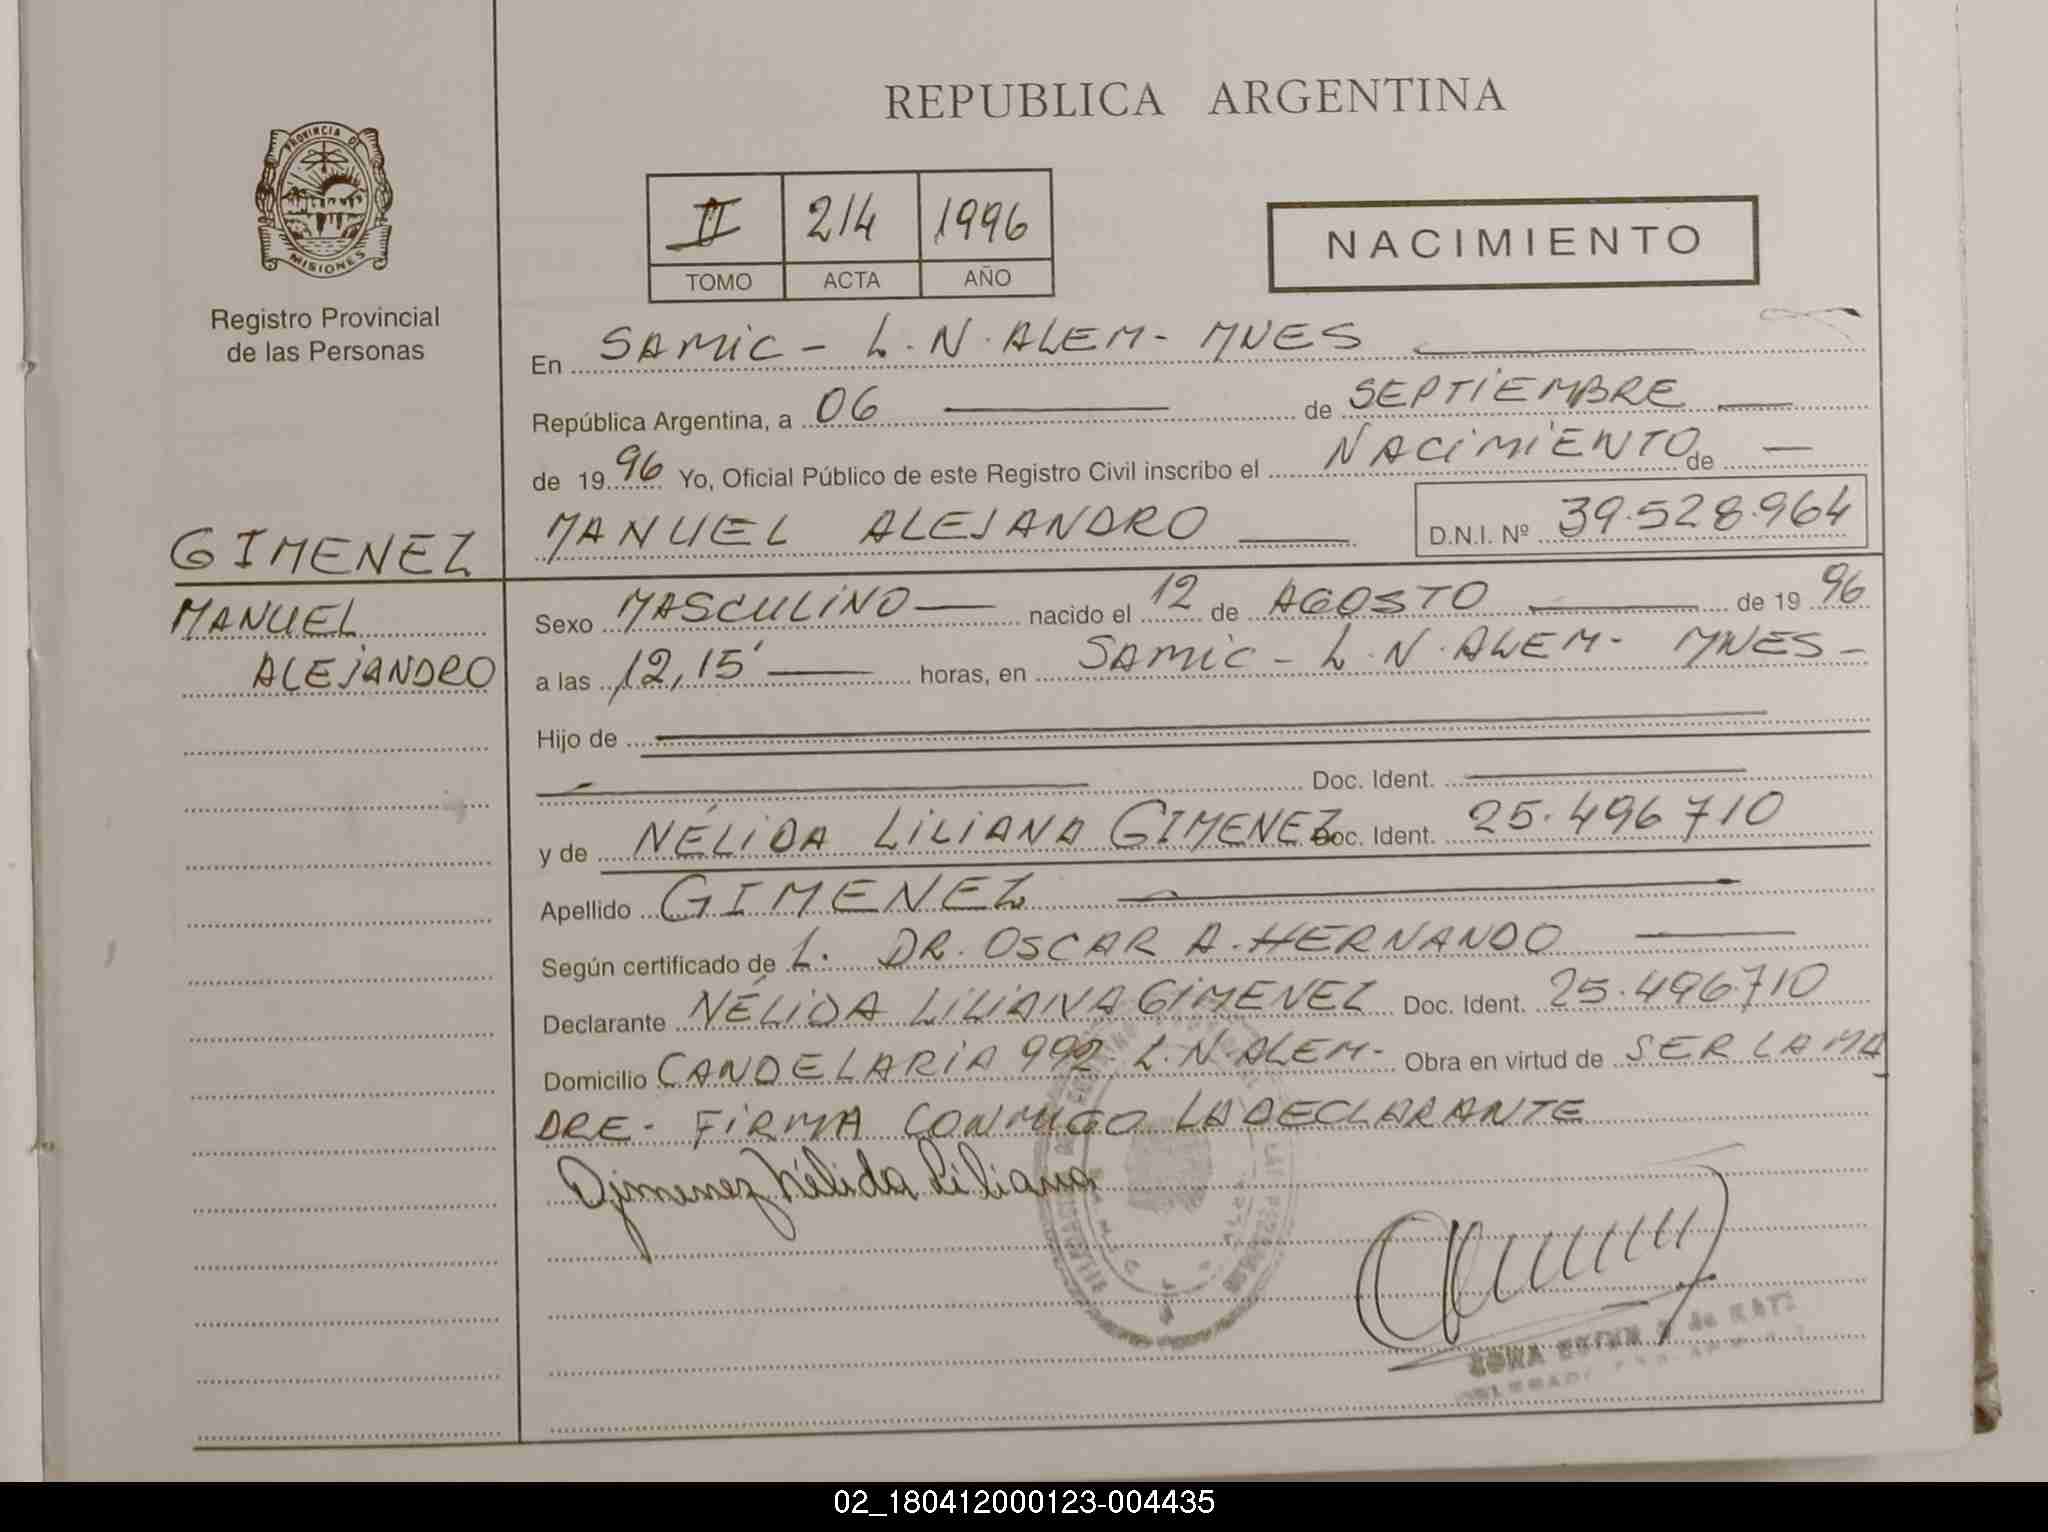 REPUBLICA ARGENTINA
PROVINCIA DE
MISIONES
Registro Provincial
de las Personas
II 214 1996
TOMO ACTA AÑO
NACIMIENTO
En SAMIC - L.N. ALEM - MNES
República Argentina, a 06 de SEPTIEMBRE
de 1996 Yo, Oficial Público de este Registro Civil inscribo el NACIMIENTO de
MANUEL ALEJANDRO D.N.I. Nº 39.528.964
GIMENEZ
MANUEL
ALEJANDRO
Sexo MASCULINO nacido el 12 de AGOSTO de 1996
a las 12,15' horas, en SAMIC - L.N. ALEM - MNES -
Hijo de
Doc. Ident.
y de NÉLIDA LILIANA GIMENEZ Doc. Ident. 25.496710
Apellido GIMENEZ
Según certificado de L. DR. OSCAR A. HERNANDO
Declarante NÉLIDA LILIANA GIMENEZ Doc. Ident. 25.496710
Domicilio CANDELARIA 992 L.N. ALEM - Obra en virtud de SER LA MA
DRE - FIRMA CONMIGO LA DECLARANTE
Gimenez Nélida Liliana
02_180412000123-004435